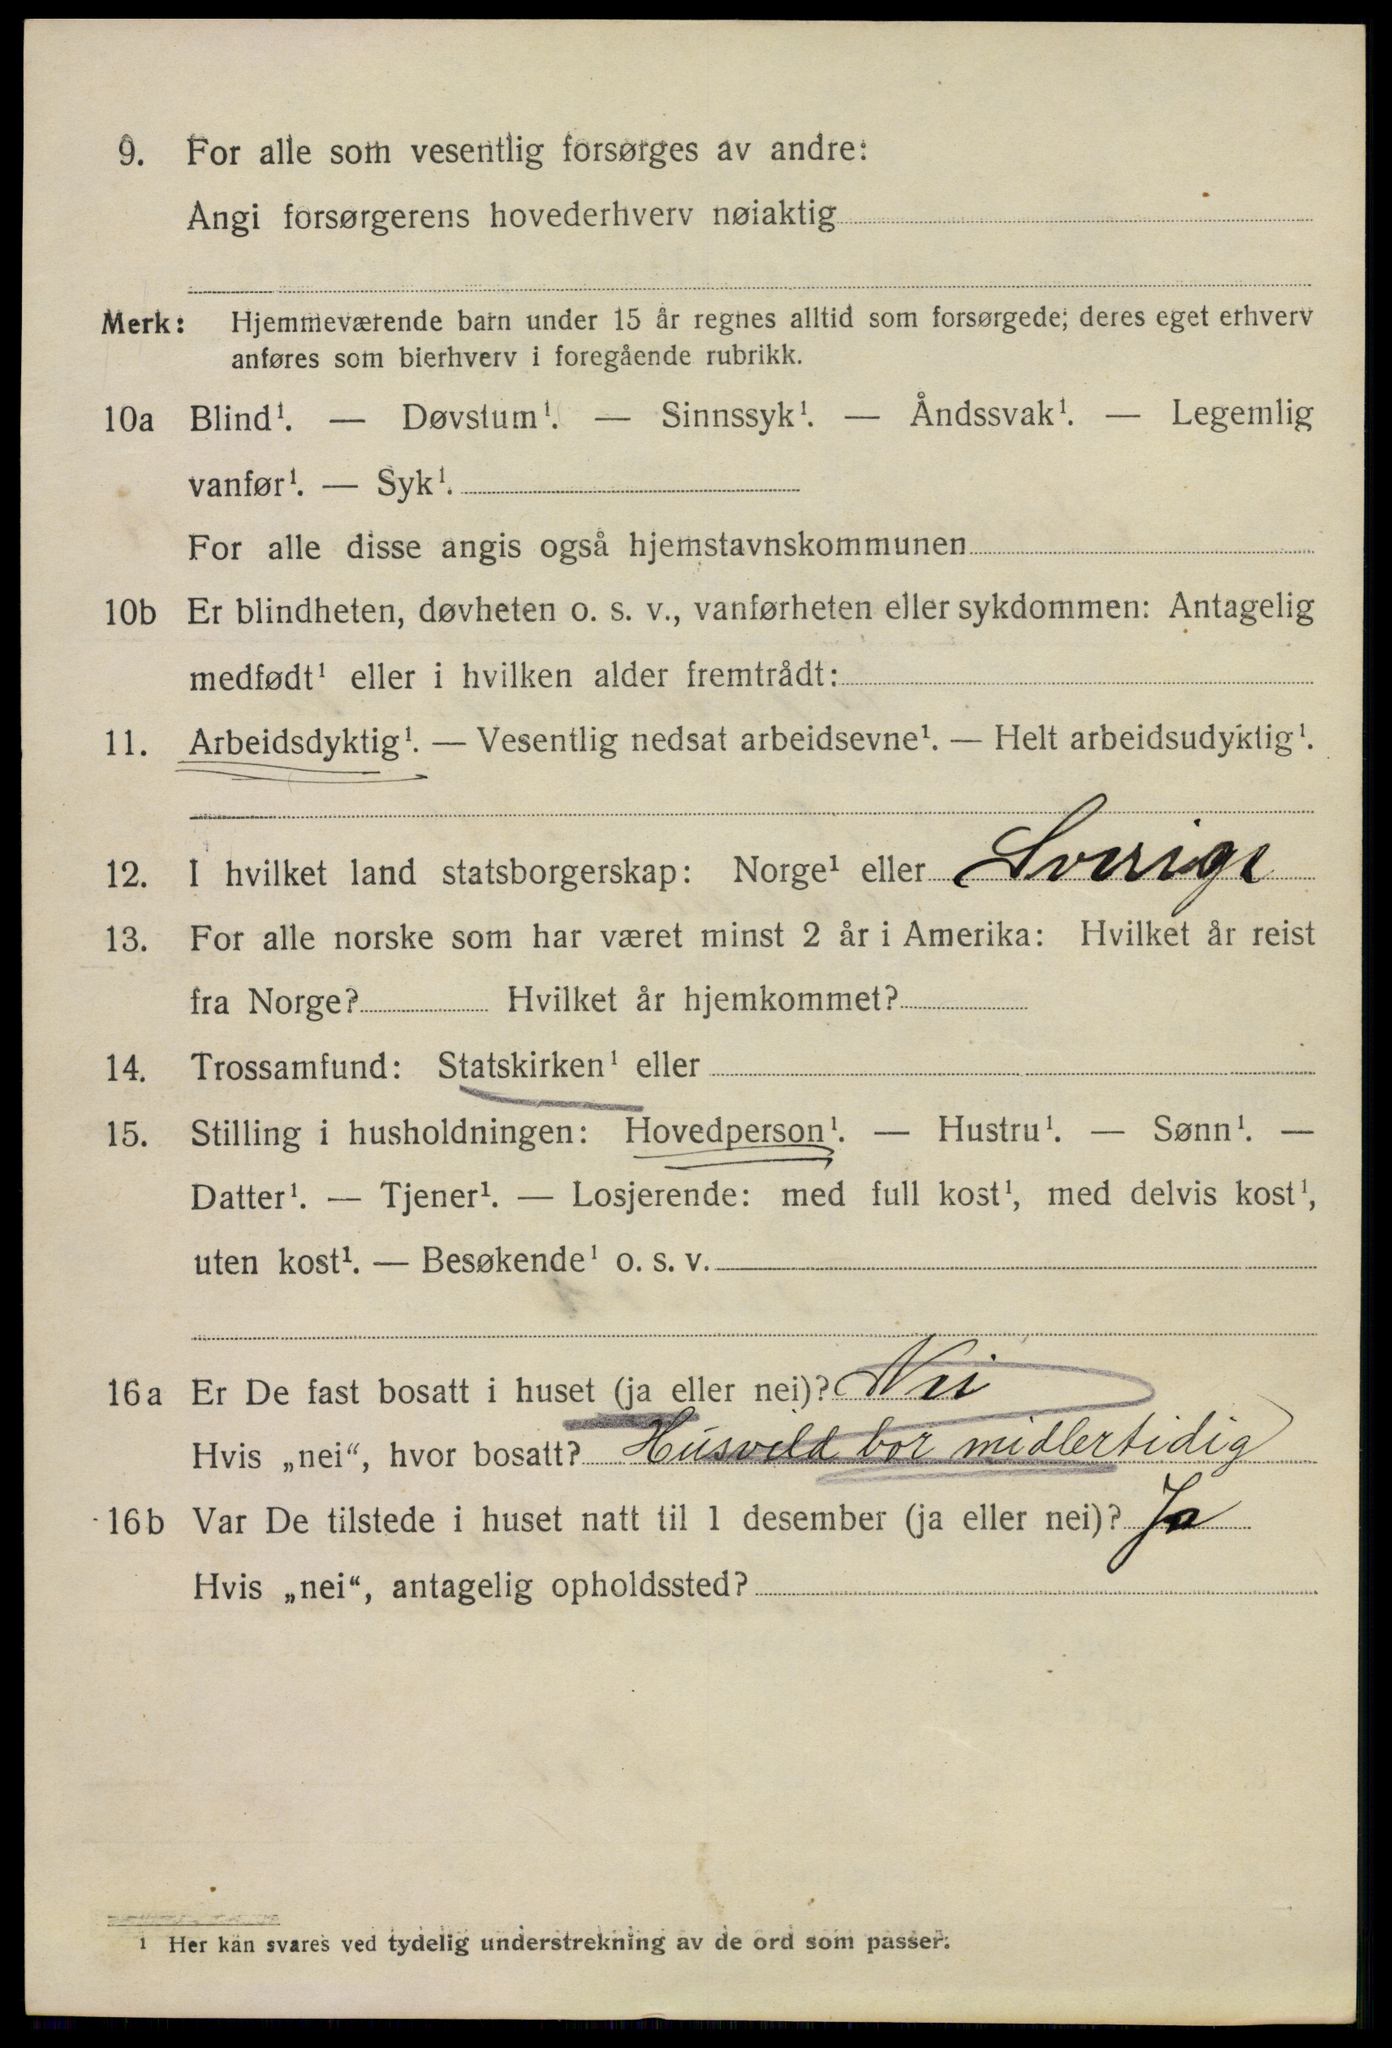 9. For alle som vesentlig forsørges av andre:
Angi forsørgerens hovederhverv nøiaktig
Merk: Hjemmeværende barn under 15 år regnes alltid som forsørgede; deres eget erhverv
anføres som bierhverv i foregående rubrikk.
10a Blind¹. — Døvstum¹. — Sinnssyk¹. — Åndssvak¹. — Legemlig
vanfør¹. — Syk¹.
For alle disse angis også hjemstavnskommunen
10b Er blindheten, døvheten o. s. v., vanførheten eller sykdommen: Antagelig
medfødt¹ eller i hvilken alder fremtrådt:
11. Arbeidsdyktig¹. — Vesentlig nedsat arbeidsevne¹. — Helt arbeidsudyktig¹.
12. I hvilket land statsborgerskap: Norge¹ eller Sverige
13. For alle norske som har været minst 2 år i Amerika: Hvilket år reist
fra Norge? Hvilket år hjemkommet?
14. Trossamfund: Statskirken¹ eller
15. Stilling i husholdningen: Hovedperson¹. — Hustru¹. — Sønn¹. —
Datter¹. — Tjener¹. — Losjerende: med full kost¹, med delvis kost¹,
uten kost¹. — Besøkende¹ o. s. v.
16a Er De fast bosatt i huset (ja eller nei)? Nei
Hvis „nei“, hvor bosatt? Husvild bor midlertidig
16b Var De tilstede i huset natt til 1 desember (ja eller nei)? Ja
Hvis „nei“, antagelig opholdssted?
¹ Her kan svares ved tydelig understrekning av de ord som passer.